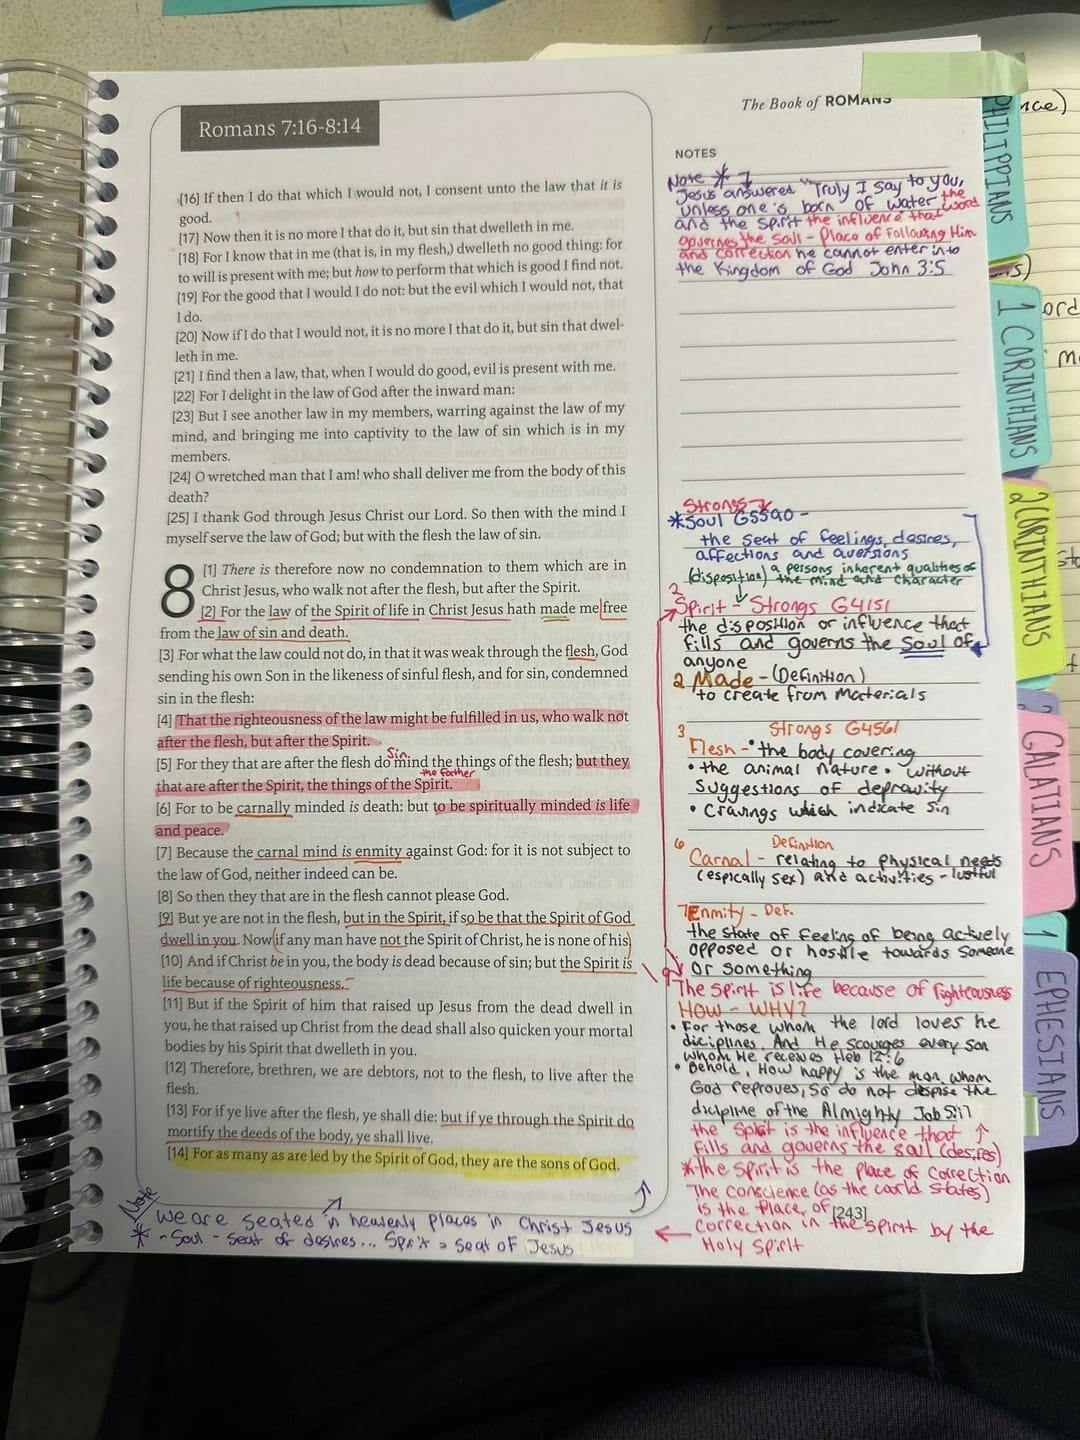 Romans 7:16-8:14
The Book of ROMANS
[16] If then I do that which I would not, I consent unto the law that it is
good.
[17] Now then it is no more I that do it, but sin that dwelleth in me.
[18] For I know that in me (that is, in my flesh,) dwelleth no good thing: for
to will is present with me; but how to perform that which is good I find not.
[19] For the good that I would I do not: but the evil which I would not, that
I do.
[20] Now if I do that I would not, it is no more I that do it, but sin that dwel-
leth in me.
[21] I find then a law, that, when I would do good, evil is present with me.
[22] For I delight in the law of God after the inward man:
[23] But I see another law in my members, warring against the law of my
mind, and bringing me into captivity to the law of sin which is in my
members.
[24] O wretched man that I am! who shall deliver me from the body of this
death?
[25] I thank God through Jesus Christ our Lord. So then with the mind I
myself serve the law of God; but with the flesh the law of sin.
8 [1] There is therefore now no condemnation to them which are in
Christ Jesus, who walk not after the flesh, but after the Spirit.
[2] For the law of the Spirit of life in Christ Jesus hath made me free
from the law of sin and death.
[3] For what the law could not do, in that it was weak through the flesh, God
sending his own Son in the likeness of sinful flesh, and for sin, condemned
sin in the flesh:
[4] That the righteousness of the law might be fulfilled in us, who walk not
after the flesh, but after the Spirit.
Sin
[5] For they that are after the flesh do mind the things of the flesh; but they
the father
that are after the Spirit, the things of the Spirit.
[6] For to be carnally minded is death: but to be spiritually minded is life
and peace.
[7] Because the carnal mind is enmity against God: for it is not subject to
the law of God, neither indeed can be.
[8] So then they that are in the flesh cannot please God.
[9] But ye are not in the flesh, but in the Spirit, if so be that the Spirit of God
dwell in you. Now if any man have not the Spirit of Christ, he is none of his
[10] And if Christ be in you, the body is dead because of sin; but the Spirit is
life because of righteousness.
[11] But if the Spirit of him that raised up Jesus from the dead dwell in
you, he that raised up Christ from the dead shall also quicken your mortal
bodies by his Spirit that dwelleth in you.
[12] Therefore, brethren, we are debtors, not to the flesh, to live after the
flesh.
[13] For if ye live after the flesh, ye shall die: but if ye through the Spirit do
mortify the deeds of the body, ye shall live.
[14] For as many as are led by the Spirit of God, they are the sons of God.
Note
We are seated in heavenly places in Christ Jesus
* - Soul - Seat of desires... Spirit = seat of Jesus
NOTES
Note *
Jesus answered "Truly I say to you,
unless one is born of water the word
and the spirit the influence that
governes the soul - Place of Following Him
and correction he cannot enter into
the Kingdom of God John 3:5
Strongs
*Soul G5590 -
the seat of feelings, desires,
affections and aversions
(disposition) a persons inherent qualities of
the mind and character
2
Spirit - Strongs G4151
the disposition or influence that
fills and governs the Soul of
anyone
2 Made - (Definition)
to create from materials
3 Strongs G4561
Flesh - • the body covering
• the animal nature • without
suggestions of depravity
• Cravings which indicate sin
6 Definition
Carnal - relating to physical needs
(espically sex) and activities - lustful
7 Enmity - Def.
the state of feeling of being actively
opposed or hostile towards someone
or something
The Spirit is life because of righteousness
HOW - WHY?
• For those whom the lord loves he
diciplines. And He scourges every son
whom He receives Heb 12:6
• Behold, How happy is the man whom
God reproves, So do not despise the
dicipline of the Almighty Job 5:17
the Spirit is the influence that ↑
fills and governs the soul (desires)
*the Spirit is the place of correction
The conscience (as the world states)
is the place of
[243]
← correction in the spirit by the
Holy Spirit
PHILIPPIANS
1 CORINTHIANS
2 CORINTHIANS
GALATIANS
EPHESIANS